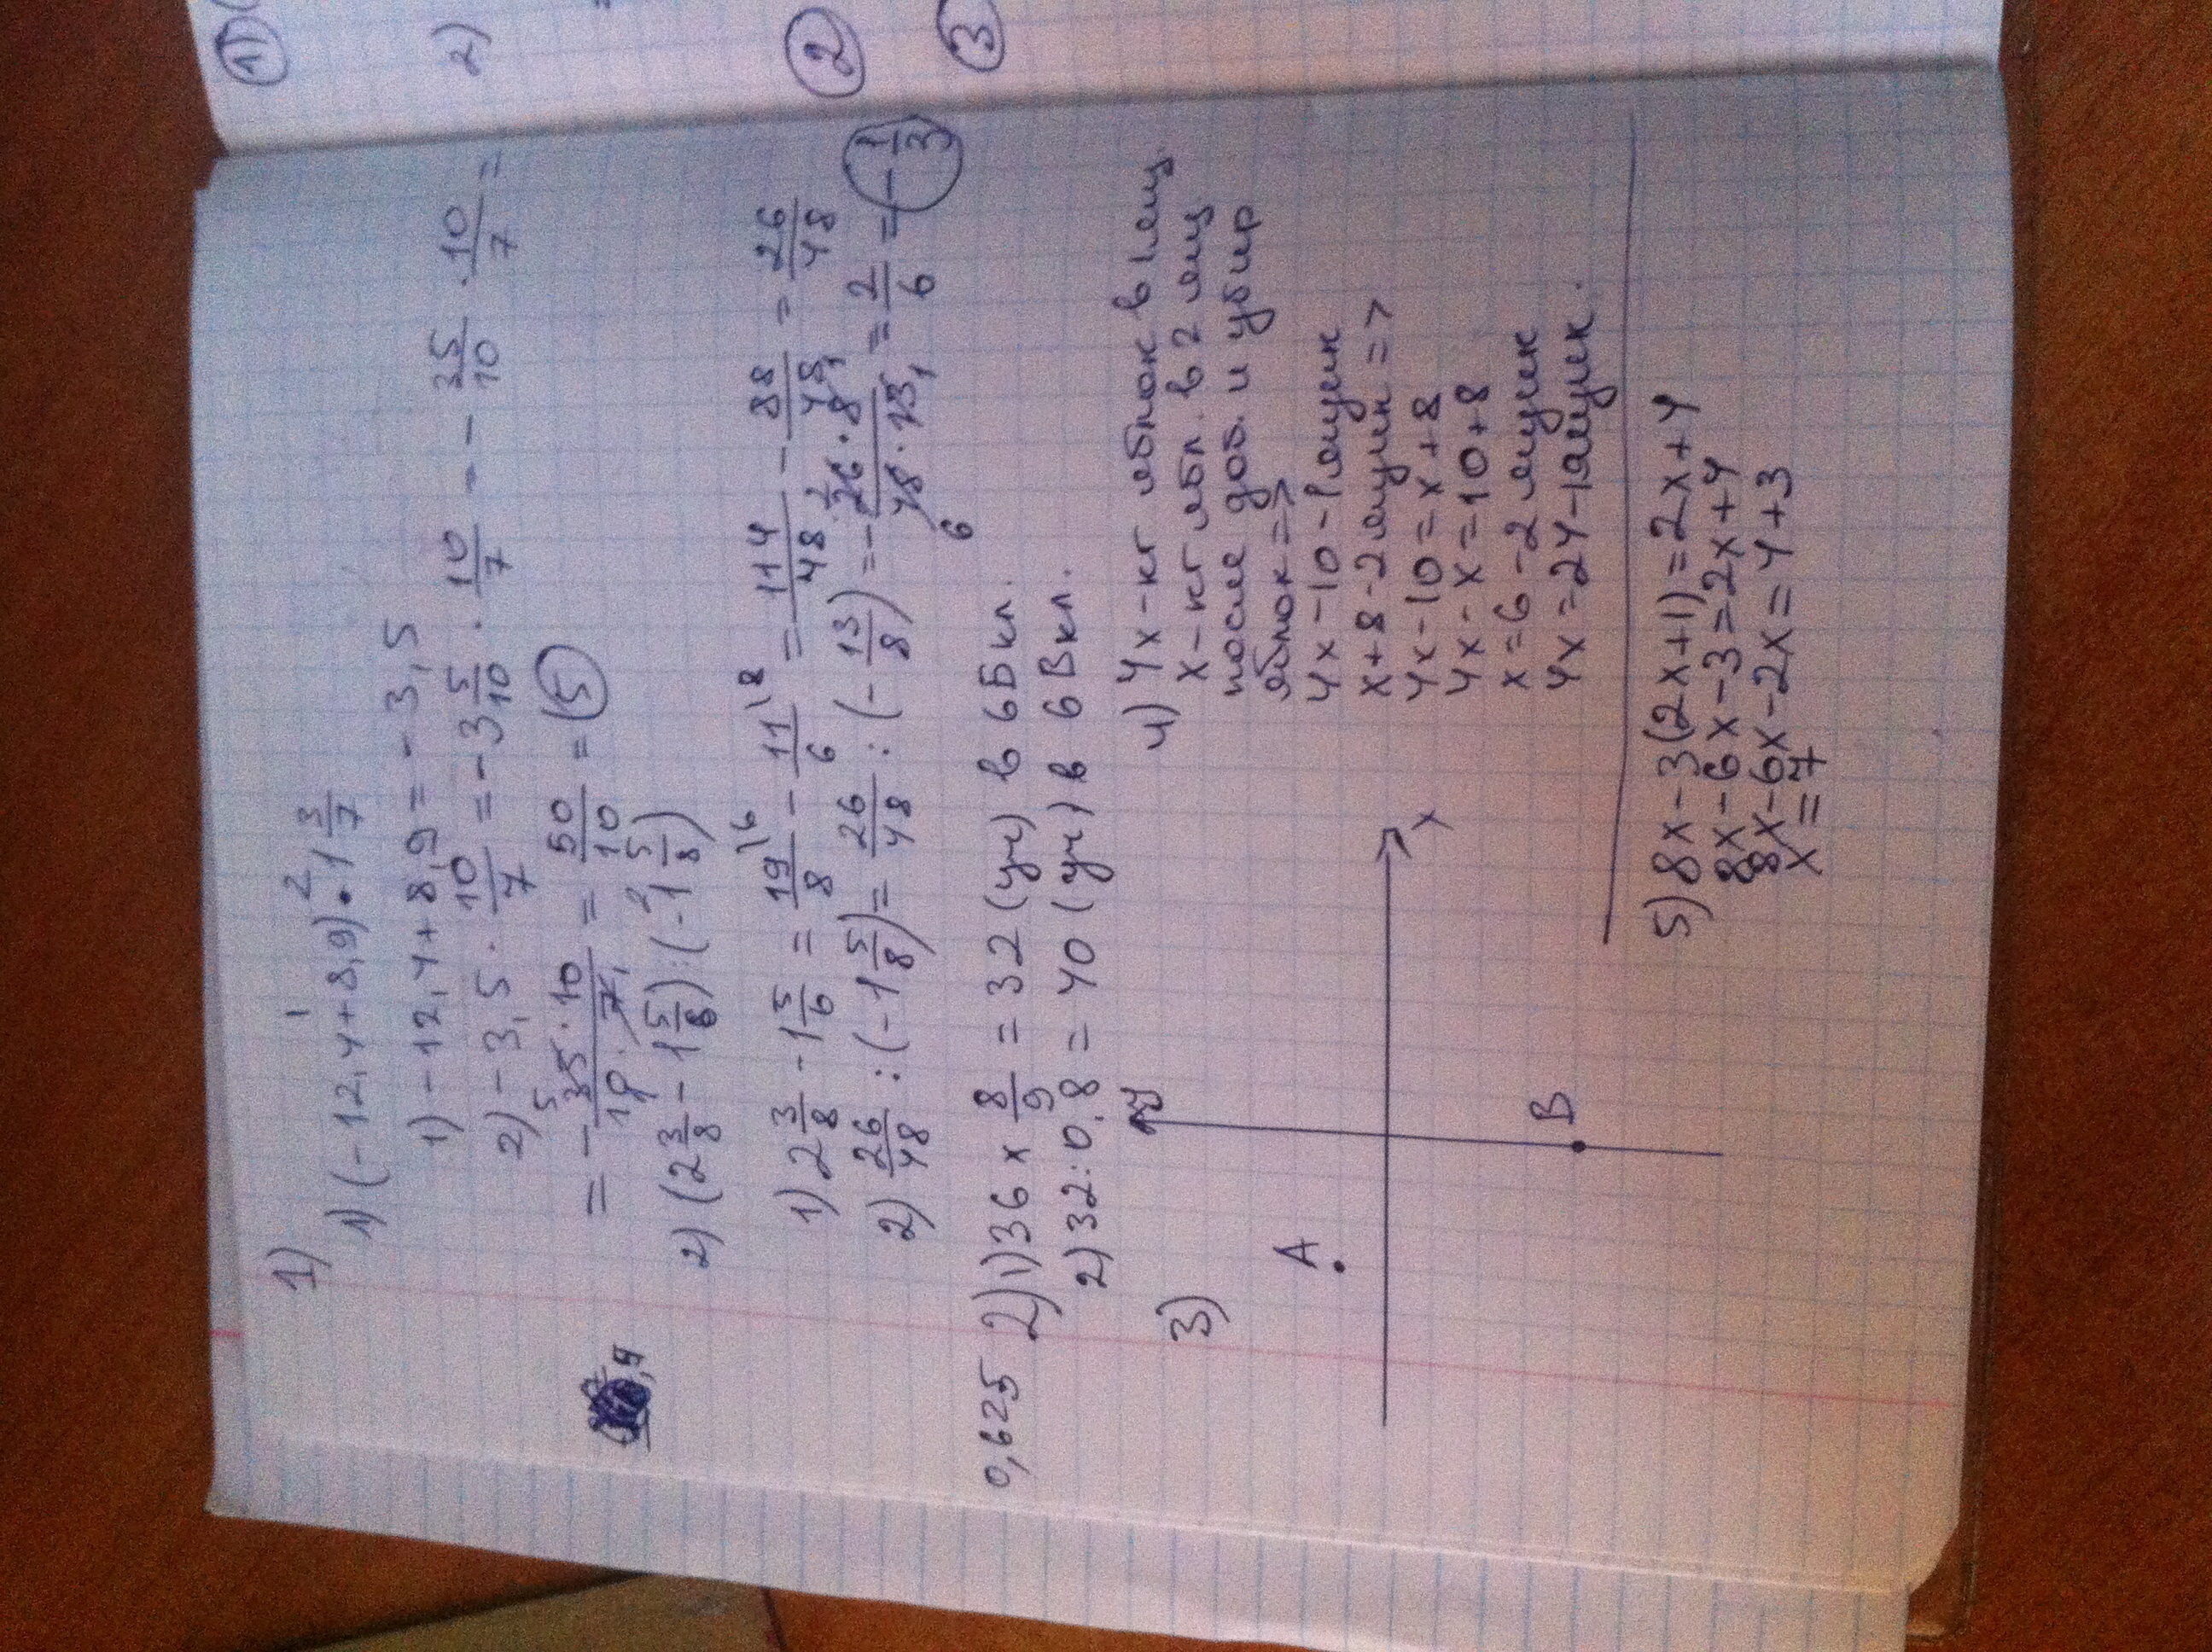 1)
1) (-12,4+8,9)·1 3/7
1 2
1) -12,4+8,9=-3,5
2) -3,5·10/7=-3 5/10·10/7=-35/10·10/7=
=-35·10/10·7=50/10=(5)
5 1
2) (2 3/8-1 5/6):(-1 5/8)
1) 2 3/8-1 5/6=19/8-11/6=114/48-88/48=26/48
\6 \8
2) 26/48:(-1 5/8)=26/48:(-13/8)=-26·8/48·13=2/6=-1/3
2 1 6 1
0,625
,4
2) 1) 36 x 8/9=32 (уч) в 6Бкл.
2) 32:0.8=40 (уч) в 6Вкл.
3)
A
B
x
y
4) 4x-кг яблок в 1ящ.
x-кг ябл. в 2 ящ
после доб. и убир
яблок=>
4x-10-1ящик
x+8-2ящик=>
4x-10=x+8
4x-x=10+8
x=6-2 ящик
4x=24-1ящик.
5) 8x-3(2x+1)=2x+4
8x-6x-3=2x+4
8x-6x-2x=4+3
x=7
1)
2)
=
2
3